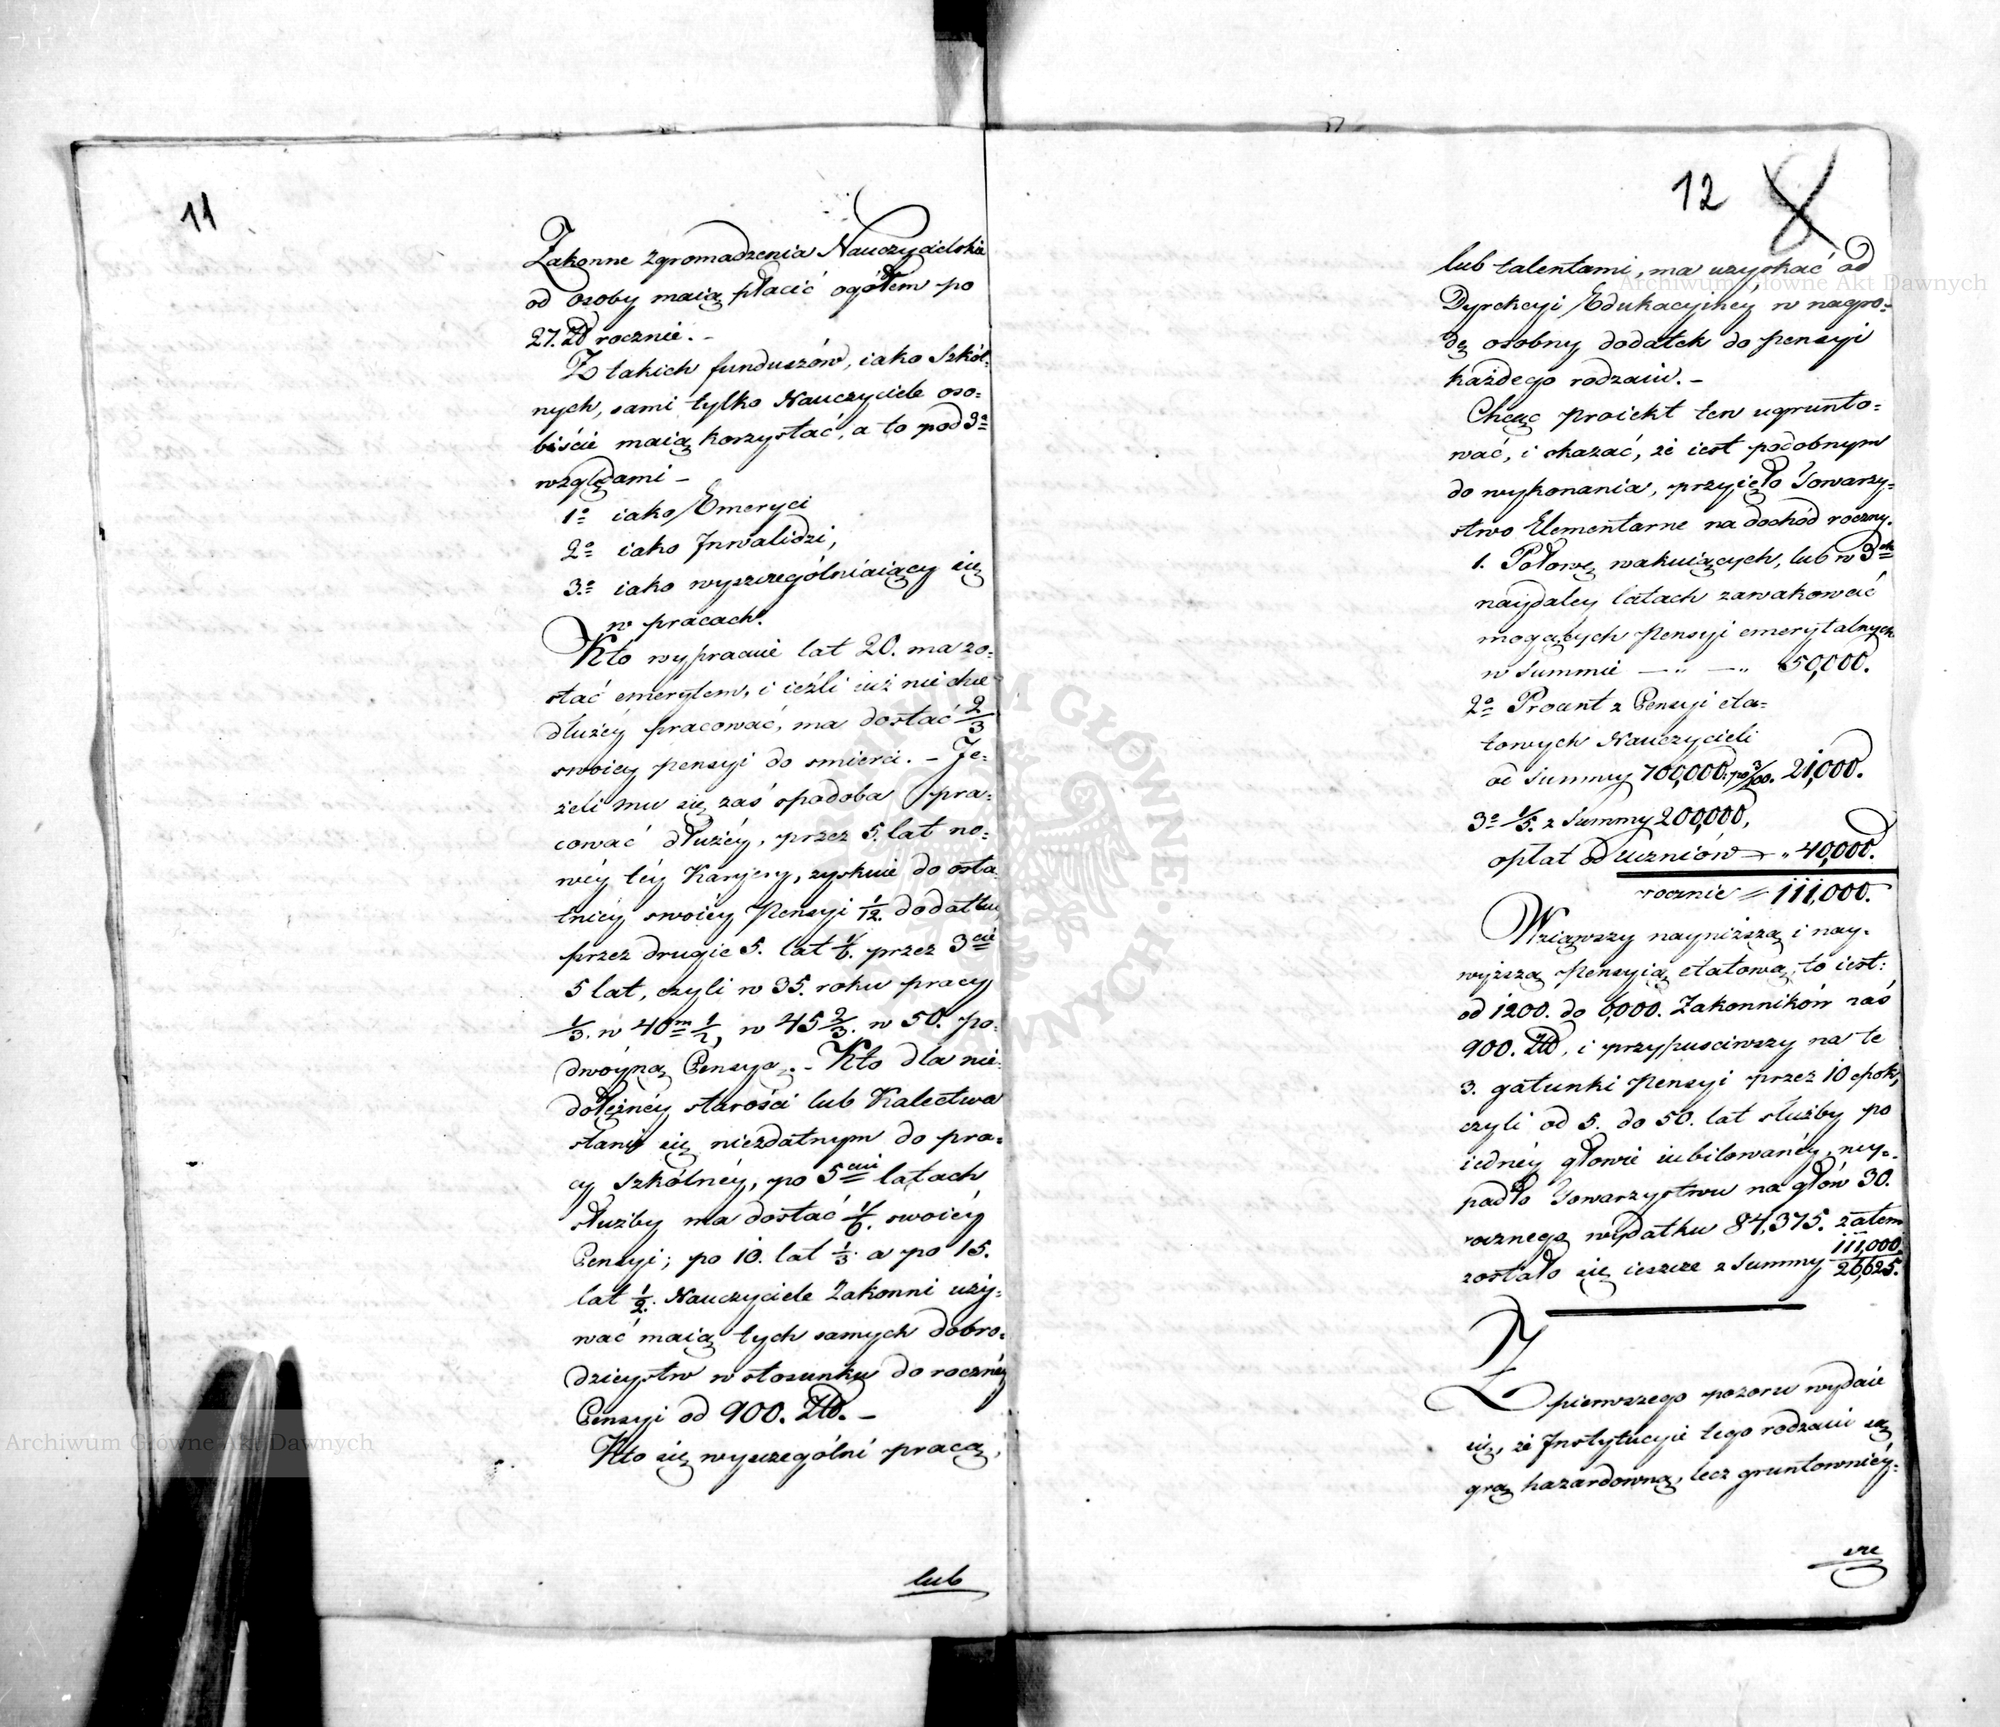 11
Zakonne zgromadzenia Nauczycielskie
od osoby maią płacić ogółem po
27. Zł rocznie. -
Z takich funduszów, iako Szkól-
nych, sami tylko Nauczyciele oso-
biście maią korzystać, a to pod 3ª
względami -
1º iako Emeryci
2º iako Inwalidzi,
3º iako wyszczególniaiący się
w pracach.
Kto wypracuie lat 20. ma zo-
stać emerytem, i ieźli iuż nie chce
dłużéy pracować, ma dostać 2/3
swoiey pensyi do smierci. - Je-
żeli mu się zaś spodoba pra-
cować dłużéy, przez 5. lat no-
wéy téy Karyery, zyskuie do osta-
tniéy swoiéy Pensyi 1/12. dodatku,
przez drugie 5. lat 1/6. przez 3cie
5 lat, czyli w 35. roku pracy
1/3. w 40m 1/2, w 45 2/3. w 50. po-
dwóyną Pensyą. - Kto dla nie-
dołężnéy starości lub Kalectwa
stanie się niezdatnym do pra-
cy Szkólnéy, po 5ciu latach
służby ma dostać 1/6. swoiéy
Pensyi; po 10. lat 1/3. a po 15.
lat 1/2. Nauczyciele Zakonni uży-
wać maią tych samych dobro-
dzieystw w stosunku do rocznéy
Pensyi od 900. Złł. -
Kto się wyszczególni pracą,
lub
12 8
lub talentami, ma uzyskać od
Dyrekcyi Edukacyiney w nagro-
dę osobny dodatek do pensyi
każdego rodzaiu. -
Chcąc proiekt ten ugrunto-
wać, i okazać, że iest podobnym
do wykonania, przyięło Towarzy-
stwo Elementarne na dochód roczny.
1. Połowę wakuiących, lub w 3ch
naydaley latach zawakować
mogących Pensyi emerytalnych
w Summie — „ — „ 50,000.
2º Procent z Pensyi eta-
towych Nauczycieli
od Summy 700,000. po 3/00. 21,000.
3º 1/5. z Summy 200,000,
opłat od uczniów — „ 40,000.
rocznie = 111,000.
Wziąwszy nayniższą i nay-
wyższą Pensyią etatową, to iest:
od 1200. do 6,000. Zakonników zaś
900. Złł, i przypuściwszy na te
3. gatunki Pensyi przez 10 epok,
czyli od 5. do 50. lat służby po
iednéy głowie iubilowanéy, wy-
padło Towarzystwu na głów 30.
rocznego wydatku 84,375. zatem
zostało się ieszcze z Summy 111,000.
26,625.
Z
pierwszego pozoru wydaie
się, że Instytucyie tego rodzaiu są
grą hazardowną, lecz gruntownéy-
sze
Archiwum Główne Akt Dawnych
Archiwum Główne Akt Dawnych